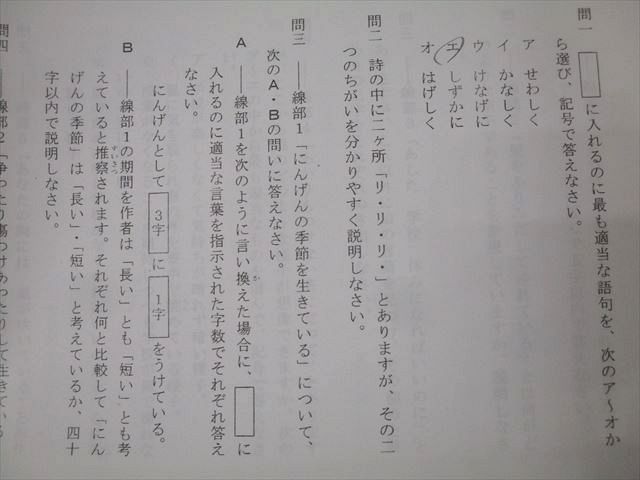 問一 □に入れるのに最も適当な語句を、次のア～オか
ら選び、記号で答えなさい。
ア せわしく
イ かなしく
ウ けなげに
エ しずかに
オ はげしく
問二 詩の中に二ヶ所「リ・リ・リ・」とありますが、その二
つのちがいを分かりやすく説明しなさい。
問三 ――線部1「にんげんの季節を生きている」について、
次のA・Bの問いに答えなさい。
A ――線部1を次のように言い換えた場合に、□に
か
入れるのに適当な言葉を指示された字数でそれぞれ答え
なさい。
にんげんとして 3字 に 1字 をうけている。
B ――線部1の期間を作者は「長い」とも「短い」とも考
えていると推察されます。それぞれ何と比較して「にん
すいさつ
げんの季節」は「長い」・「短い」と考えているか、四十
字以内で説明しなさい。
問四 ――線部2「争ったり傷つけあったりして生きている